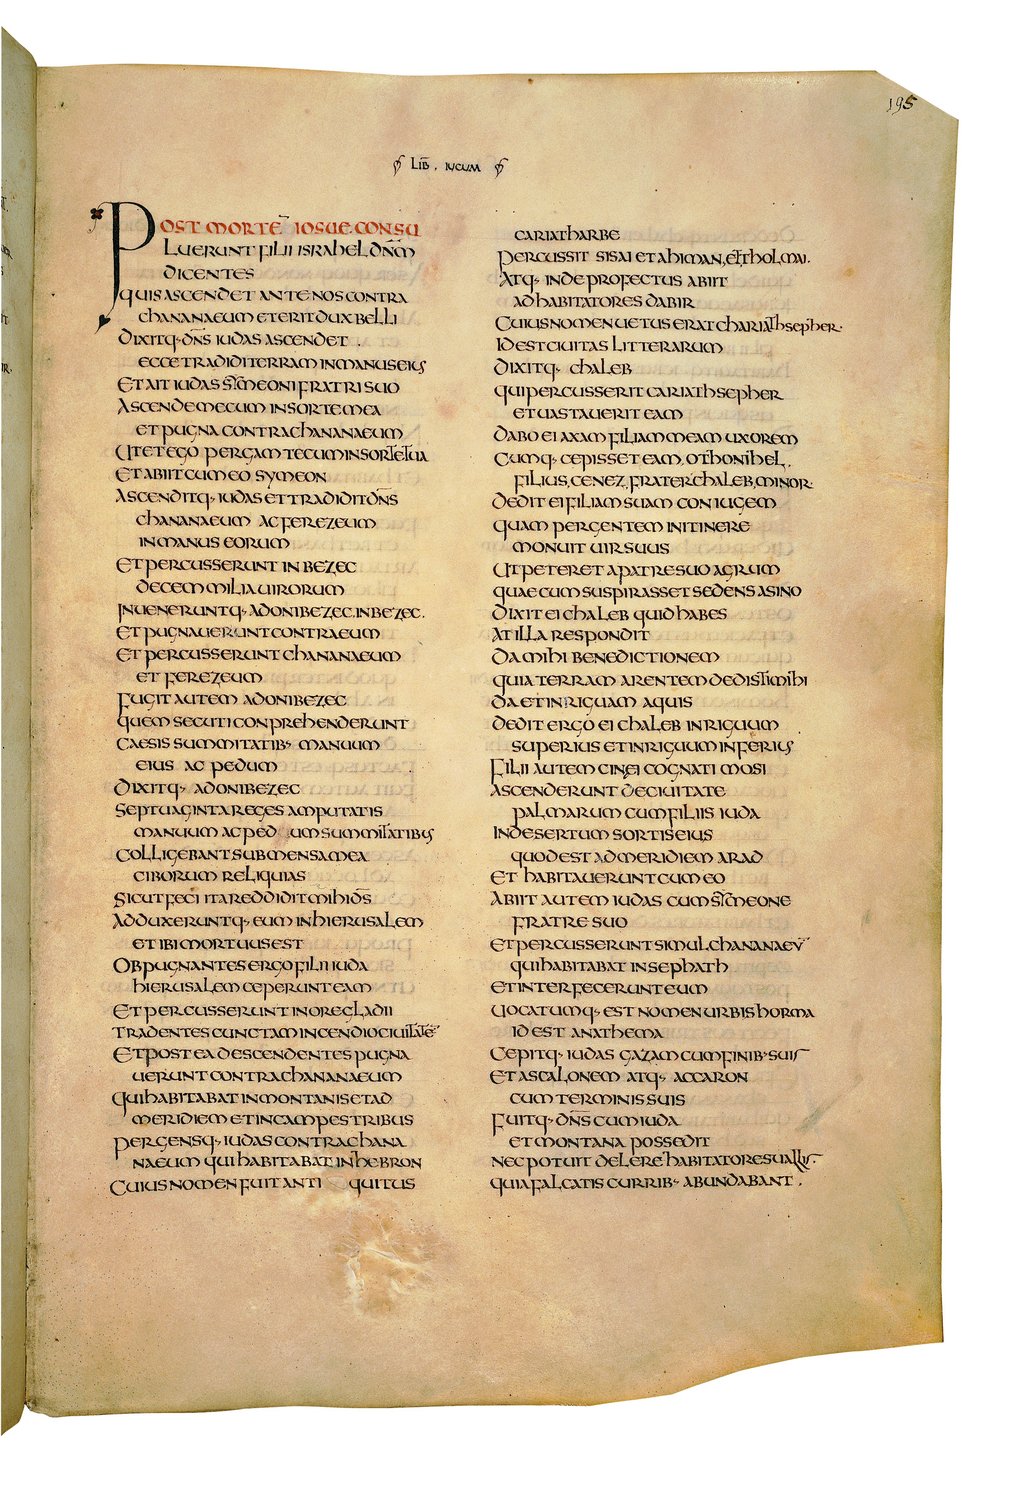 195
LIB̄ . IUCUM
POST MORTĒ IOSUE CONSU
LUERUNT FILII ISRAHEL DN̄M
DICENTES
QUIS ASCENDET ANTE NOS CONTRA
CHANANAEUM ET ERIT DUX BELLI
DIXITQ· DN̄S IUDAS ASCENDET .
ECCE TRADIDI TERRAM IN MANUS EIUS
ET AIT IUDAS SYMEONI FRATRI SUO
ASCENDE MECUM IN SORTE MEA
ET PUGNA CONTRA CHANANAEUM
UT ET EGO PERGAM TECUM IN SORTE TUA
ET ABIIT CUM EO SYMEON
ASCENDITQ· IUDAS ET TRADIDIT DN̄S
CHANANAEUM AC FEREZEUM
IN MANUS EORUM
ET PERCUSSERUNT IN BEZEC
DECEM MILIA UIRORUM
INUENERUNTQ· ADONIBEZEC. IN BEZEC.
ET PUGNAUERUNT CONTRA EUM
ET PERCUSSERUNT CHANANAEUM
ET FEREZEUM
FUGIT AUTEM ADONIBEZEC
QUEM SECUTI CONPREHENDERUNT
CAESIS SUMMITATIB· MANUUM
EIUS AC PEDUM
DIXITQ· ADONIBEZEC
SEPTUAGINTA REGES AMPUTATIS
MANUUM AC PED UM SUMMITATIBUS
COLLIGEBANT SUB MENSA MEA
CIBORUM RELIQUIAS
SICUT FECI ITA REDDIDIT MIHI DS̄
ADDUXERUNTQ· EUM IN HIERUSALEM
ET IBI MORTUUS EST
OBPUGNANTES ERGO FILII IUDA
HIERUSALEM CEPERUNT EAM
ET PERCUSSERUNT IN ORE GLADII
TRADENTES CUNCTAM INCENDIO CIUITATĒ
ET POSTEA DESCENDENTES PUGNA
UERUNT CONTRA CHANANAEUM
QUI HABITABAT IN MONTANIS ET AD
MERIDIEM ET IN CAMPESTRIBUS
PERGENSQ· IUDAS CONTRA CHANA
NAEUM QUI HABITABAT IN HEBRON
CUIUS NOMEN FUIT ANTI QUITUS
CARIATHARBE
PERCUSSIT SISAI ET AHIMAN, ET THOLMAI.
ATQ· INDE PROFECTUS ABIIT
AD HABITATORES DABIR
CUIUS NOMEN UETUS ERAT CHARIATHSEPHER·
ID EST CIUITAS LITTERARUM
DIXITQ· CHALEB
QUI PERCUSSERIT CARIATHSEPHER
ET UASTAUERIT EAM
DABO EI AXAM FILIAM MEAM UXOREM
CUMQ· CEPISSET EAM. OTHONIHEL.
FILIUS, CENEZ, FRATER CHALEB, MINOR·
DEDIT EI FILIAM SUAM CONIUGEM
QUAM PERGENTEM IN ITINERE
MONUIT UIR SUUS
UT PETERET A PATRE SUO AGRUM
QUAE CUM SUSPIRASSET SEDENS ASINO
DIXIT EI CHALEB QUID HABES
AT ILLA RESPONDIT
DA MIHI BENEDICTIONEM
QUIA TERRAM ARENTEM DEDISTI MIHI
DA ET INRIGUAM AQUIS
DEDIT ERGO EI CHALEB INRIGUUM
SUPERIUS ET INRIGUUM INFERIUS
FILII AUTEM CINEI COGNATI MOSI
ASCENDERUNT DE CIUITATE
PALMARUM CUM FILIIS IUDA
IN DESERTUM SORTIS EIUS
QUOD EST AD MERIDIEM ARAD
ET HABITAUERUNT CUM EO
ABIIT AUTEM IUDAS CUM SYMEONE
FRATRE SUO
ET PERCUSSERUNT SIMUL CHANANAEŪ
QUI HABITABAT IN SEPHATH
ET INTERFECERUNT EUM
UOCATUMQ· EST NOMEN URBIS HORMA
ID EST ANATHEMA
CEPITQ· IUDAS GAZAM CUM FINIB· SUIS
ET ASCALONEM ATQ· ACCARON
CUM TERMINIS SUIS
FUITQ· DN̄S CUM IUDA
ET MONTANA POSSEDIT
NEC POTUIT DELERE HABITATORES UALLIS
QUIA FALCATIS CURRIB· ABUNDABANT .